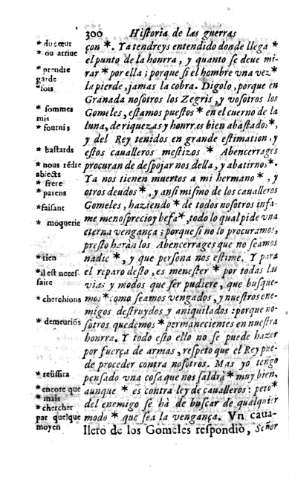 300 Historia de las guerras
* du cœur
çon *. Ya tendreys entendido donde llega *
* ou arriue
el punto de la honrra, y quanto se deue mi-
* prendre garde
rar * por ella; porque si el hombre vna vez *
* fois
la pierde, jamas la cobra. Digolo, porque en
Granada nosotros los Zegris, y vosotros los
* sommes mis
Gomeles, estamos puestos * en el cuerno de la
* fournis
luna, de riquezas y honrras bien abastados *,
y del Rey tenidos en grande estimacion, y
* bastards
estos caualleros mestizos * Abencerrages
* nous rẽdre abiects
procuran de despojarnos della, y abatirnos *.
* frere
Ya nos tienen muertos a mi hermano *, y
* parens
otros deudos *, y ansi mismo de los caualleros
* faisant
Gomeles, haziendo * de todos nosotros infa-
* moquerie
me menosprecio y befa *, todo lo qual pide vna
eterna vengança; porque si no lo procuramos,
presto haràn los Abencerrages que no seamos
* rien
nadie *, y que persona nos estime. Y para
* il est neces- saire
el reparo desto, es menester * por todas las
vias y modos que ser pudiere, que busque-
* cherchions
mos * como seamos vengados, y nuestros ene-
migos destruydos y aniquilados: porque no-
* demeuriõs
sotros quedemos * permanecientes en nuestra
honrra. Y todo esto ello no se puede hazer
por fuerça de armas, respeto que el Rey pue-
de proceder contra nosotros. Mas yo tengo
* reüssira
pensado vna cosa que nos saldrà * muy bien,
* encore que
aunque * es contra ley de caualleros: pero *
* mais
* chercher
del enemigo se hà de buscar de qualquier
par quelque moyen
modo * que sea la vengança. Vn caua-
llero de los Gomeles respondiò, Señor